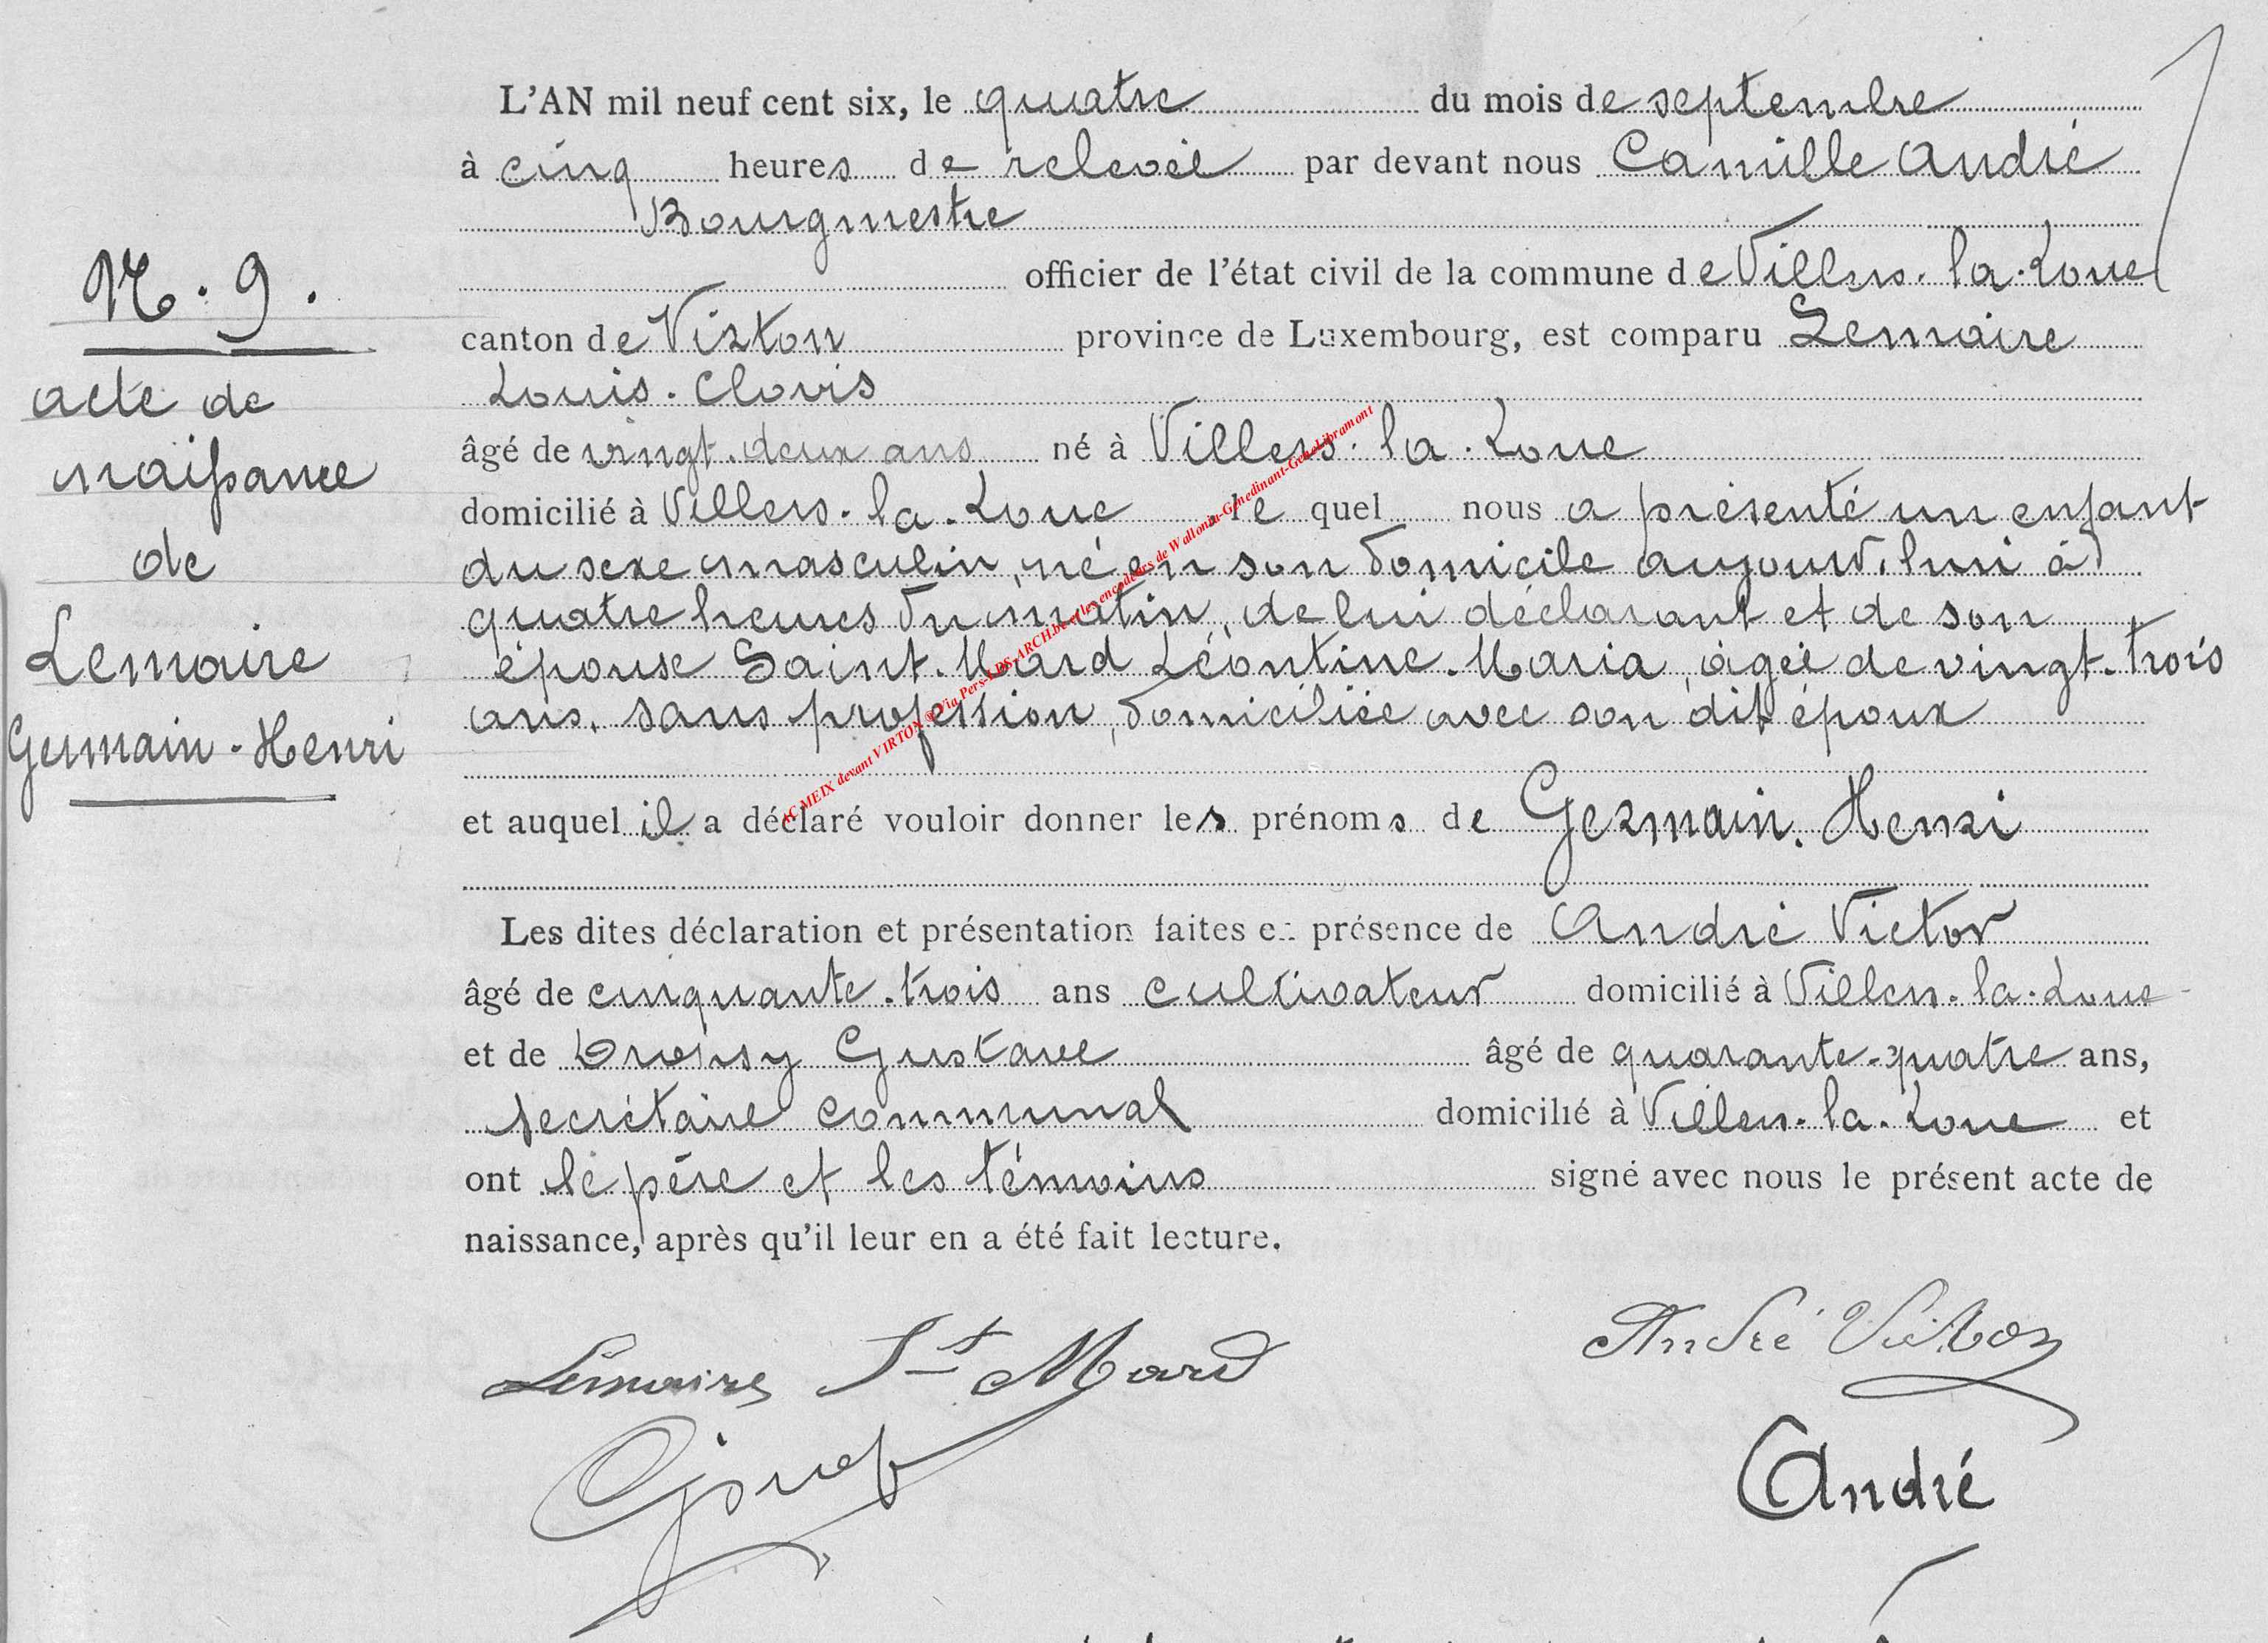 L'AN mil neuf cent six, le quatre du mois de septembre
à cinq heures de relevée par devant nous Camille André
Bourgmestre
officier de l'état civil de la commune de Villers-la-Loue
canton de Virton province de Luxembourg, est comparu Lemaire
Louis-Clovis
âgé de vingt-deux ans né à Villers-la-Loue
domicilié à Villers-la-Loue lequel nous a présenté un enfant
du sexe masculin, né en son domicile aujourd'hui à
quatre heures du matin, de lui déclarant et de son
épouse Saint-Mard Léontine-Maria, âgée de vingt-trois
ans, sans profession, domiciliée avec son dit époux
et auquel il a déclaré vouloir donner les prénoms de Germain-Henri
Les dites déclaration et présentation faites en présence de André Victor
âgé de cinquante-trois ans cultivateur domicilié à Villers-la-Loue
et de Gustave âgé de quarante-quatre ans,
secrétaire communal domicilié à Villers-la-Loue et
ont le père et les témoins signé avec nous le présent acte de
naissance, après qu'il leur en a été fait lecture.
N. 9.
acte de
naissance
de
Lemaire
Germain-Henri
AC MEIX devant VIRTON @ Via Pers-LDS-ARCH.be et les encodeurs de Wallonia-Genedinant-GeneLibramont
Lemaire St Mard
André Victor
André